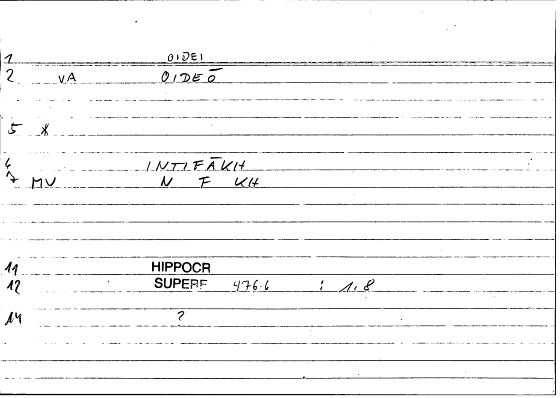 1 OIDEI
2 VA OIDEŌ
5 *
6 INTIFĀKH
7 MV N F KH
11 HIPPOCR
12 SUPERF 476.6 : 1.8
14 ?